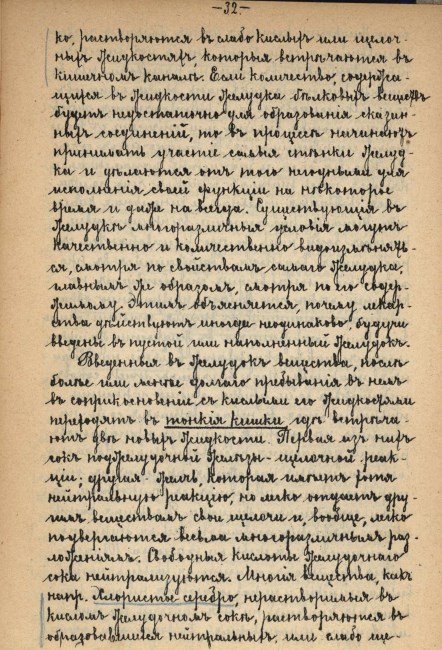 —32.—
ко, растворяются въ слабо кислыхъ или щелоч-
ныхъ жидкостяхъ, которыя встрѣчаются въ
кишечномъ каналѣ. Если количество, содержа-
щихся въ жидкости желудка бѣлковыхъ веществъ
будетъ недостаточно для образованія сказан-
ныхъ соединеній, то въ процессѣ начинаютъ
принимать участіе самыя стѣнки желуд-
ка и дѣлаются отъ того негодными для
исполненія своей функціи на некоторое
время и даже на всегда. Существующія въ
желудкѣ многоразличныя условія могутъ
качественно и количественно видоизмѣнять-
ся, смотря по свойствамъ самаго желудка,
главнымъ же образомъ, смотря по его содер-
жимому. Этимъ объясняется, почему лекар-
ства дѣйствуютъ иногда неодинаково, будучи
введены въ пустой или наполненный желудокъ.
Введенныя въ желудокъ вещества, послѣ
болѣе или менѣе долгаго пребыванія въ немъ
въ соприкосновеніи съ кислыми его жидкостями
переходятъ въ тонкія кишки, гдѣ встрѣча-
ютъ двѣ новыя жидкости. Первая изъ нихъ
сокъ поджелудочной железы - щелочной реак-
ціи; другая - желчь, которая имѣетъ хотя
нейтральную реакцію, но легко отдаетъ дру-
гимъ веществамъ свои щелочи и, вообще, легко
подвергаются весьма многоразличнымъ раз-
ложеніямъ. Свободныя кислоты желудочнаго
сока нейтрализуются. Многія вещества, какъ
напр. хлористое серебро, нерастворимыя въ
кисломъ желудочномъ сокѣ, растворяются въ
образовавшемся нейтральныхъ или слабо ще-